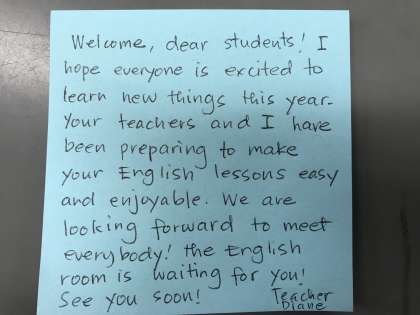 Welcome, dear students! I
hope everyone is excited to
learn new things this year.
Your teachers and I have
been preparing to make
your English lessons easy
and enjoyable. We are
looking forward to meet
everybody! the English
room is waiting for you!
See you soon! Teacher
Diane